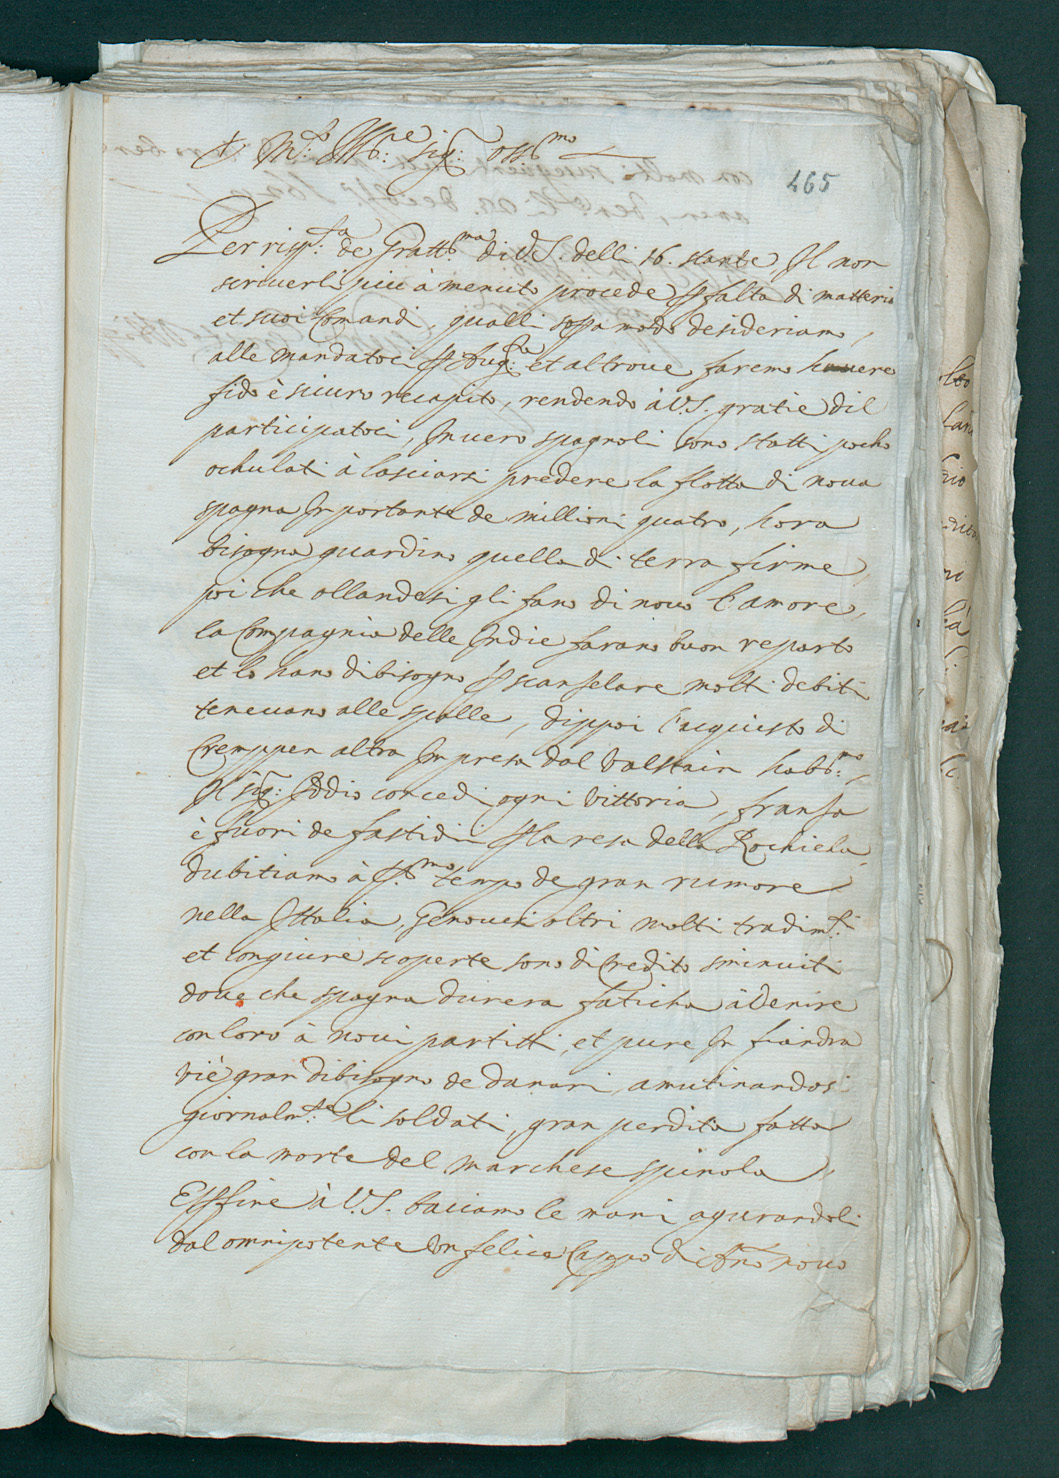 Mto. Illre. sigr. ossmo
465
Per rispta de Grattma di V.S. delli 16. stante Il non
scriverli piu à menuto procede p falta di matteria
et suoi Comandi, qualli sopa modo desideriamo,
alle mandatoci p Augta et altroue faremo hauere
fido è sicuro recapito, rendendo à V.S. gratie dil
participatoci, In uero spagnoli sono statti pocho
ochulati à lasciarsi predere la flotta di noua
spagna Importante de millioni quatro, hora
bisogna guardino quella di terra firme,
poi che ollandesi gli fano di nouo l'amore,
la Compagnia delle Indie farano buon reparto
et lo hano di bisogno p scanselare molti debiti
teneuano alle spalle, dippoi l'acquisto di
Cremppen altra Impresa dal Valstain habbmo,
Il sigr: Iddio concedi ogni Vittoria, fransa
è fuori de fastidi p la resa della Rochiela,
dubitiamo à pmo tempo de gran rumore
nella Ittalia, Genouesi oltri molti tradimti
et congiure scoperte sono di Credito sminuiti
doue che spagna durera faticha à Venire
con loro à noui partitti, et pure In fiandra
vi è gran di bisogno de danari amutinandosi
giornalmte li soldati, gran perdita fatta
con la morte del marchese spinola,
Et p fine à V.S. baciamo le mani agurandoli
dal omnipotente Un felice Cappo di Ano nouo